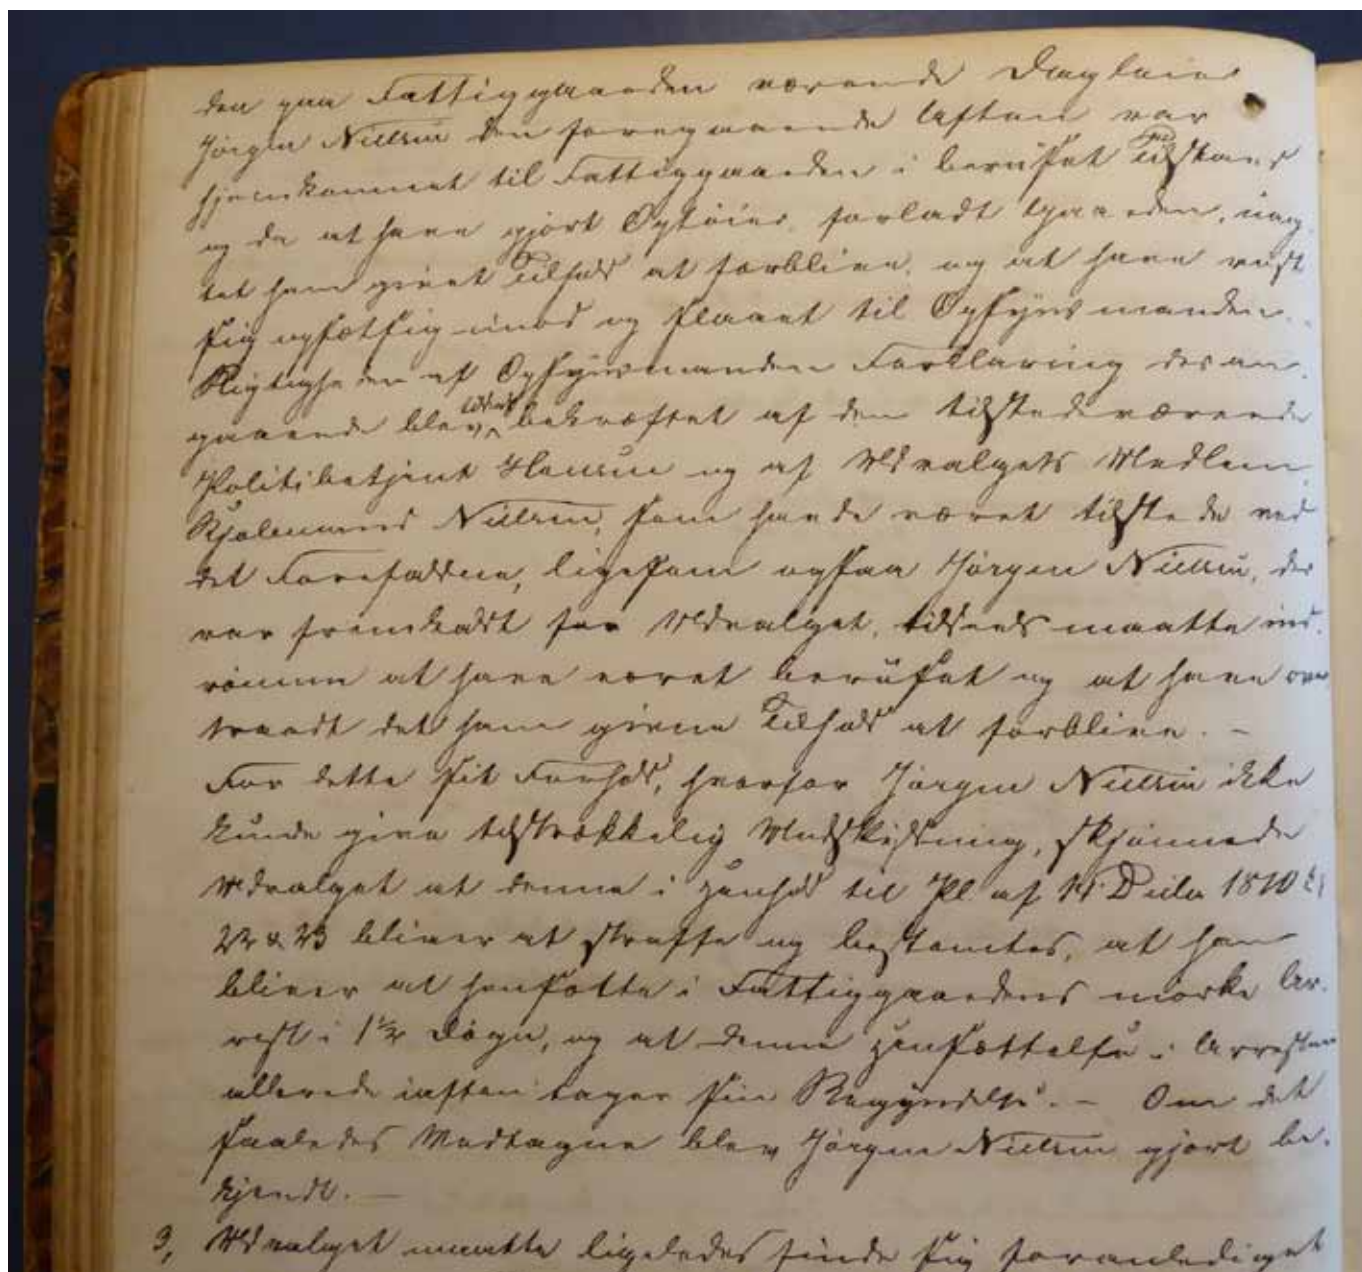 den paa Fattiggaarden værende Dagleier
Jørgen Nielsen den foregaaende Aften var
hjemkommet til Fattiggaarden i beruset Tilstand
og da at have gjort Optøier, forladt Gaarden, uag-
tet ham givet Tilhold at forblive, og at have viist
sig opsætsig imod og slaaet til Opsynsmanden.
Rigtigheden af Opsynsmandens Forklaring desan-
gaaende blev bekræftet af den tilstedeværende
Politibetjent Hansen og af Udvalgets Medlem
Nielsen, som havde været tilstede ved
det Forefaldne, ligesom ogsaa Jørgen Nielsen, der
var fremkaldt for Udvalget, tildeels maatte ind-
rømme at have været beruset og at have over
traadt det ham givne Tilhold at forblive. -
For dette sit Forhold, hvorfor Jørgen Nielsen ikke
kunde give tilstrækkelig Undskyldning, skjønnede
Udvalget at denne i Henhold til Pl af 14 Decbr 1810 §§
22 & 23 bliver at straffe og bestemtes, at han
bliver at hensætte i Fattiggaardens mørke Ar-
rest i 1½ Døgn, og at denne Hensættelse i Arresten
allerede iaften tager sin Begyndelse. - Om det
saaledes Vedtagne blev Jørgen Nielsen gjort be-
kjendt. -
3, Udvalget maatte ligeledes finde sig foranlediget